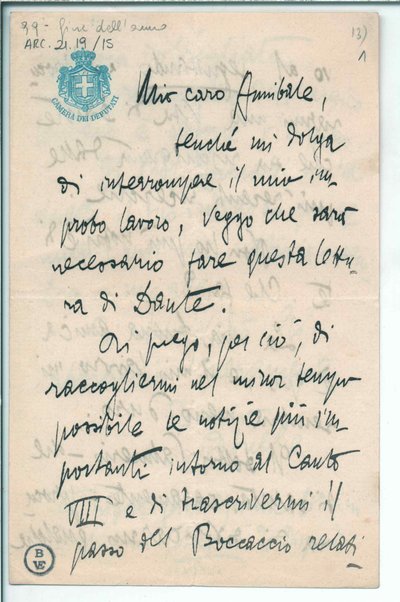 99 - fine dell'anno
ARC. 21.19/15
13)
1
CAMERA DEI DEPUTATI
Mio caro Annibale,
benché mi dolga
di interrompere il mio im
probo lavoro, veggo che sarà
necessario fare questa lettu
ra di Dante.
Ti prego, per ciò, di
raccogliermi nel minor tempo
possibile le notizie più im
portanti intorno al Canto
VIII e di trascrivermi il
passo del Boccaccio relati
B
VE